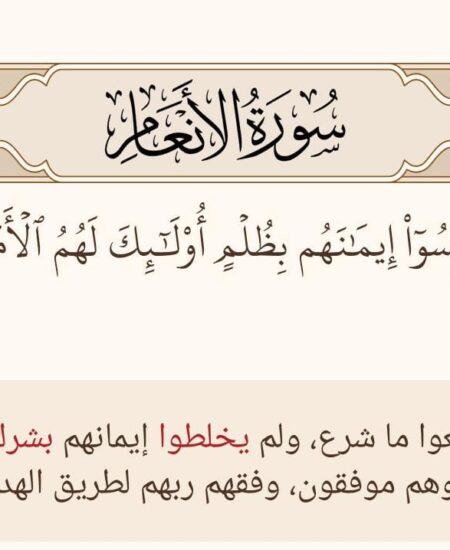 سُورَةُ الأَنْعَامِ
إِيمَٰنَهُم بِظُلۡمٍ أُوْلَـٰٓئِكَ لَهُمُ
ما شرع، ولم يخلطوا إيمانهم
وهم موفقون، وفقهم ربهم لطريق